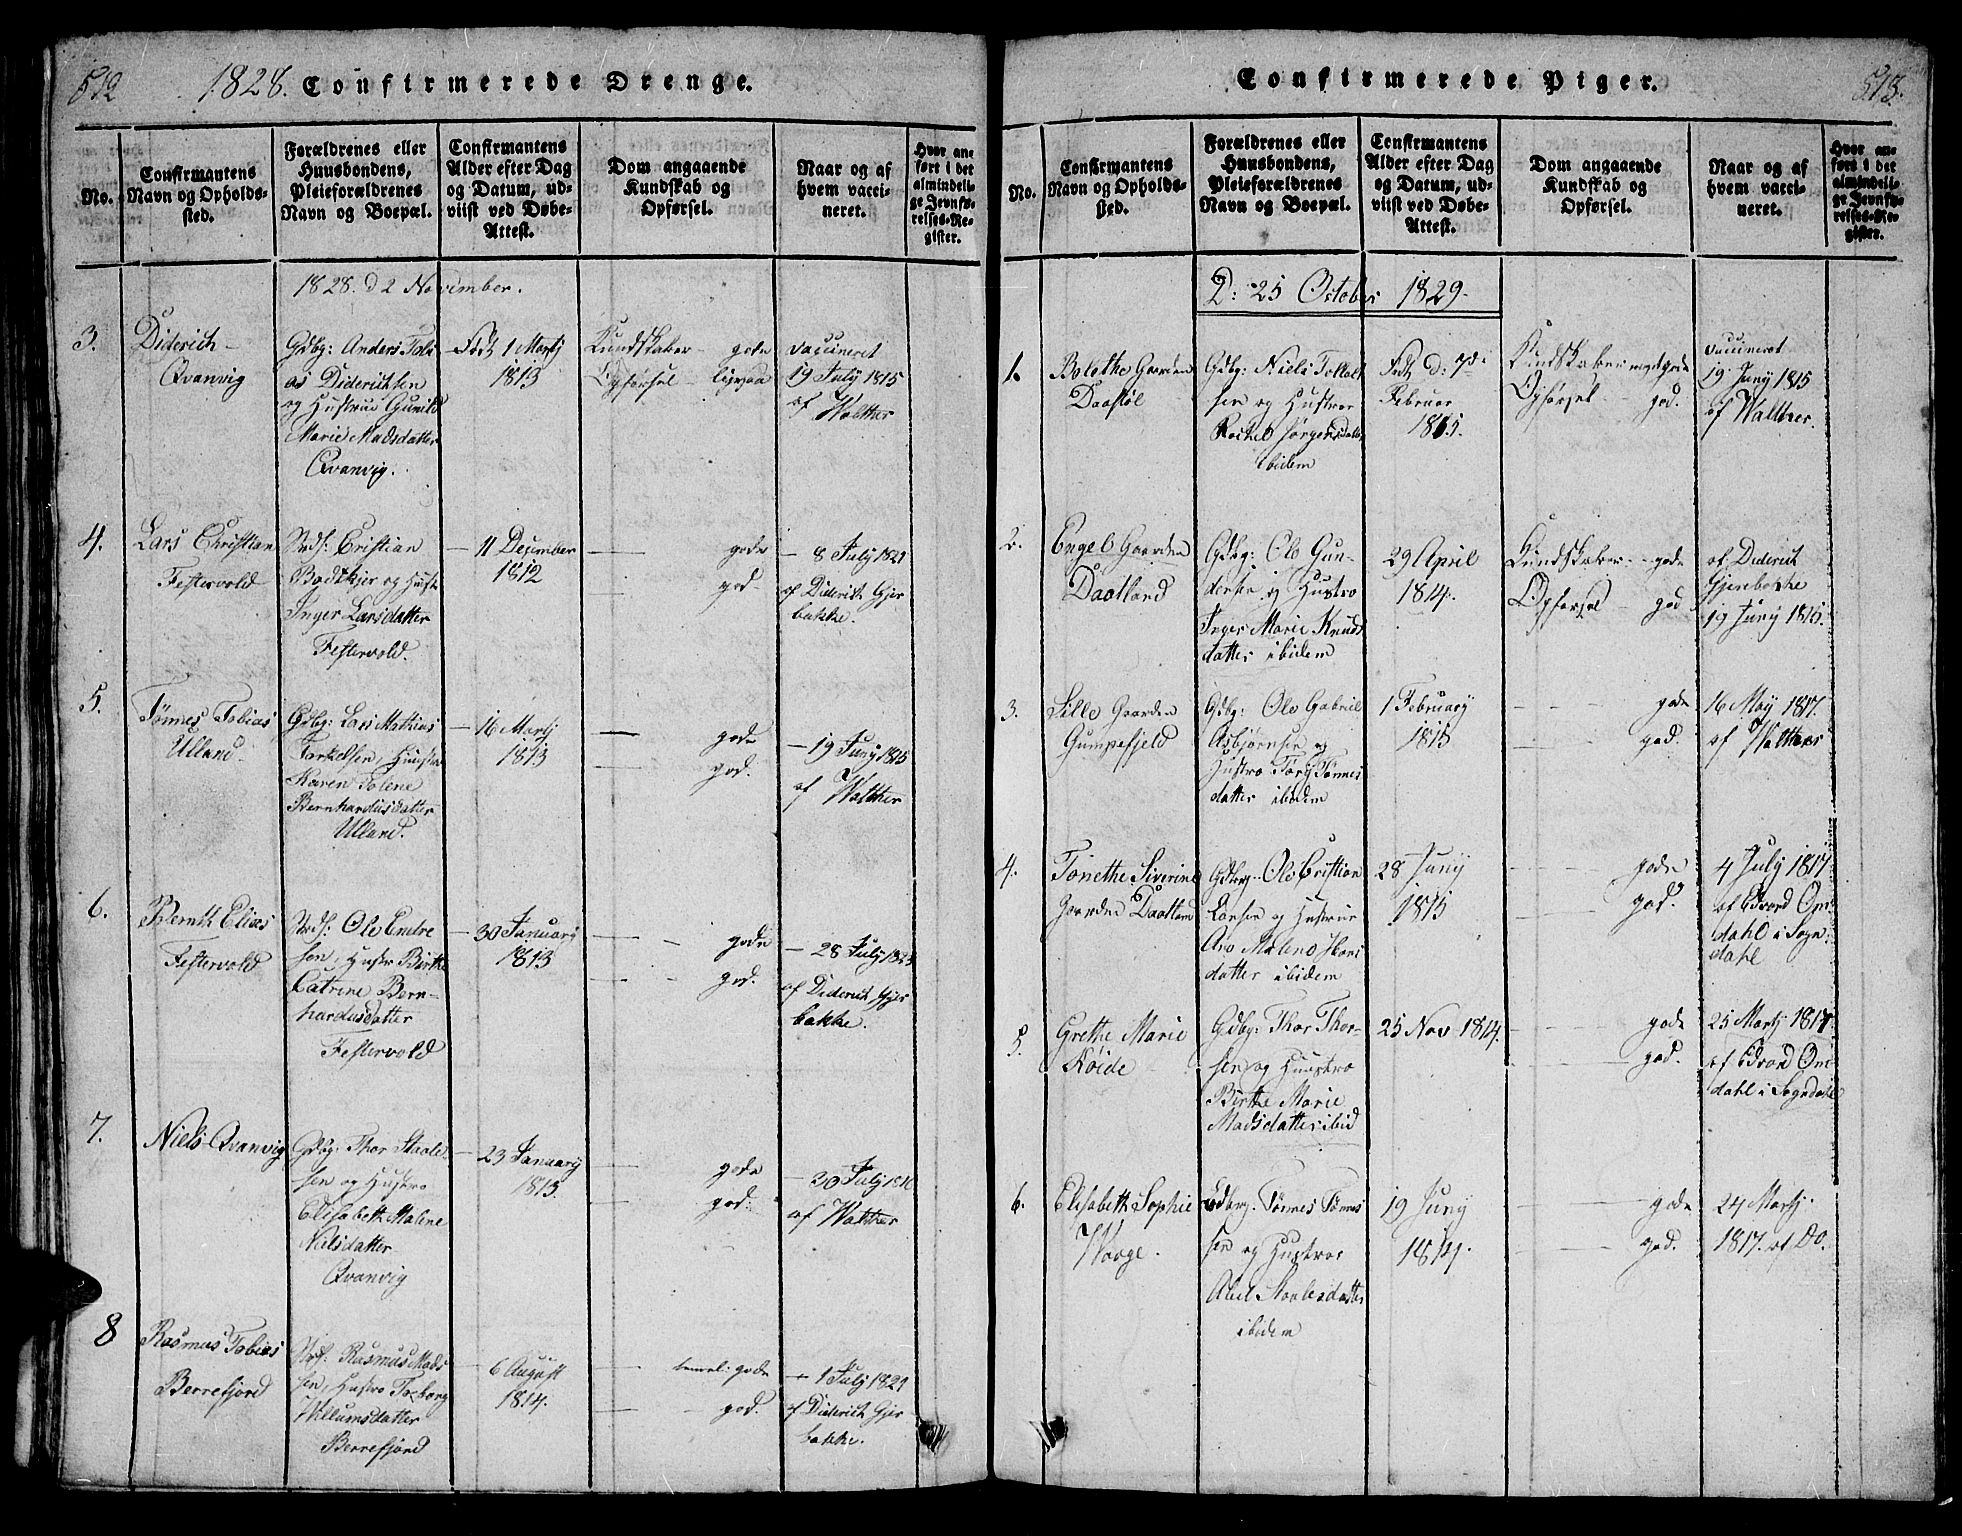 512
1828. Confirmerede Drenge.
No.
Confirmantens
Navn og Opholds-
sted.
Forældrenes eller
Huusbondens,
Pleieforældrenes
Navn og Boepæl.
Confirmantens
Alder efter Dag
og Datum, ud-
viist ved Døbe-
Attest.
Dom angaaende
Kundskab og
Opførsel.
Naar og af
hvem vacci-
neret.
Hvor an-
ført i det
almindeli-
ge Jevnfø-
relses-Re-
gister.
1828. d 2 November.
3.
Diderich
Qvanvig
Gdbg: Anders Tobi
as Diderichsen
og Hustrue Gunild
Marie Madsdatter
Qvanvig.
Født 1 Martj
1813
Kundskaber – gode
Opførsel – ligesaa
vaccineret
19 July 1815
af Walther
4.
Lars Christian
Festervold
Cristian
Bødtkjer og Hustr
Inger Larsdatter
Festervold.
– 11 December
1812
gode
god.
– 8 July 1821
af Diderich Gjer
bakke.
5.
Tönnes Tobias
Ulland.
Gdbg: Lars Mathias
Torkelsen, Huustr
Karen Tolene
Bernhardusdatter
Ulland.
– 16 Martj
1813
gode
god.
– 19 Juny 1815
af Walther
6.
Bernth Elias
Festervold
Ole Endre
sen, Hustr Birthe
Catrine Bern-
hardusdatter
Festervold
– 30 January
1813
gode
god.
– 28 July 1823
af Diderich Gjer
bakke.
7.
Niels Qvanvig
Gdbg: Thor Staale-
sen og Hustro
Elisabeth Malene
Nilsdatter
Qvanvig
– 23 January
1813.
gode
god.
– 30 July 1816
af Walther
8
Rasmus Tobias
Berrefjord
Rasmus Mads
sen, Hustro Torborg
Willumsdatter
Berrefjord
6 August
1814.
temel: gode
god.
– 1 July 1821
af Diderich Gjer
bakke.
Confirmerede Piger.
513.
No.
Confirmantens
Navn og Opholds-
sted.
Forældrenes eller
Huusbondens,
Pleieforældrenes
Navn og Boepæl.
Confirmantens
Alder efter Dag
og Datum, ud-
viist ved Døbe-
Attest.
Dom angaaende
Kundskab og
Opførsel.
Naar og af
hvem vacci-
neret.
Hvor an-
ført i det
almindeli-
ge Jevnfø-
relses-Re-
gister.
D: 25 October 1829.
1.
Bolethe Gaarden
Daastøl
Gdbg: Niels Tollak
sen og Hustroe
Rachel Jørgensdatt
ibidem
Født d: 7de
Februar
1815.
Kundskaber meget gode
Opførsel – god.
vaccineret
19. Juny 1815
af Walther.
2.
Engel Gaarden
Daatland
Gdbg: Ole Gun-
dersen og Hustro
Inger Marie Knuds
datter ibidem
29 April
1814.
Kundskaber – gode
Opførsel – god
af Diderich
Gjerebakke
19 Juny 1815.
3.
Sille Gaarden
Gumpefjeld
Gdbg: Ole Gabriel
Asbjørnsen og
Hustro Tory Tønnes
datter ibidem
1 February
1815
gode
god.
16 May 1817.
af Walther
4.
Tonethe Siverine
Gaarden Daatland
Gdbrg. Ole Cristian
Larsen og Hustrue
Ane Malene
datter ibidem
28 Juny
1815
gode
god.
4 July 1817
af Edvard Om
dahl i Sogn:
dahl
5.
Grethe Marie
Röide
Gdbg: Thor Thor-
sen og Huustro
Birthe Marie
Madsdatter ibid
25 Nov 1814.
gode
god.
25 Martj 1817
af Edvard Om-
dahl i Sogndahl
6.
Elisabeth Sophie
Waage.
Gdbrg. Tønnes Tønnes
sen og Hustroe
Abel Staalesdatter
ibidem
19 Juny
1814.
gode
god.
24 Martj.
1817. af Do.